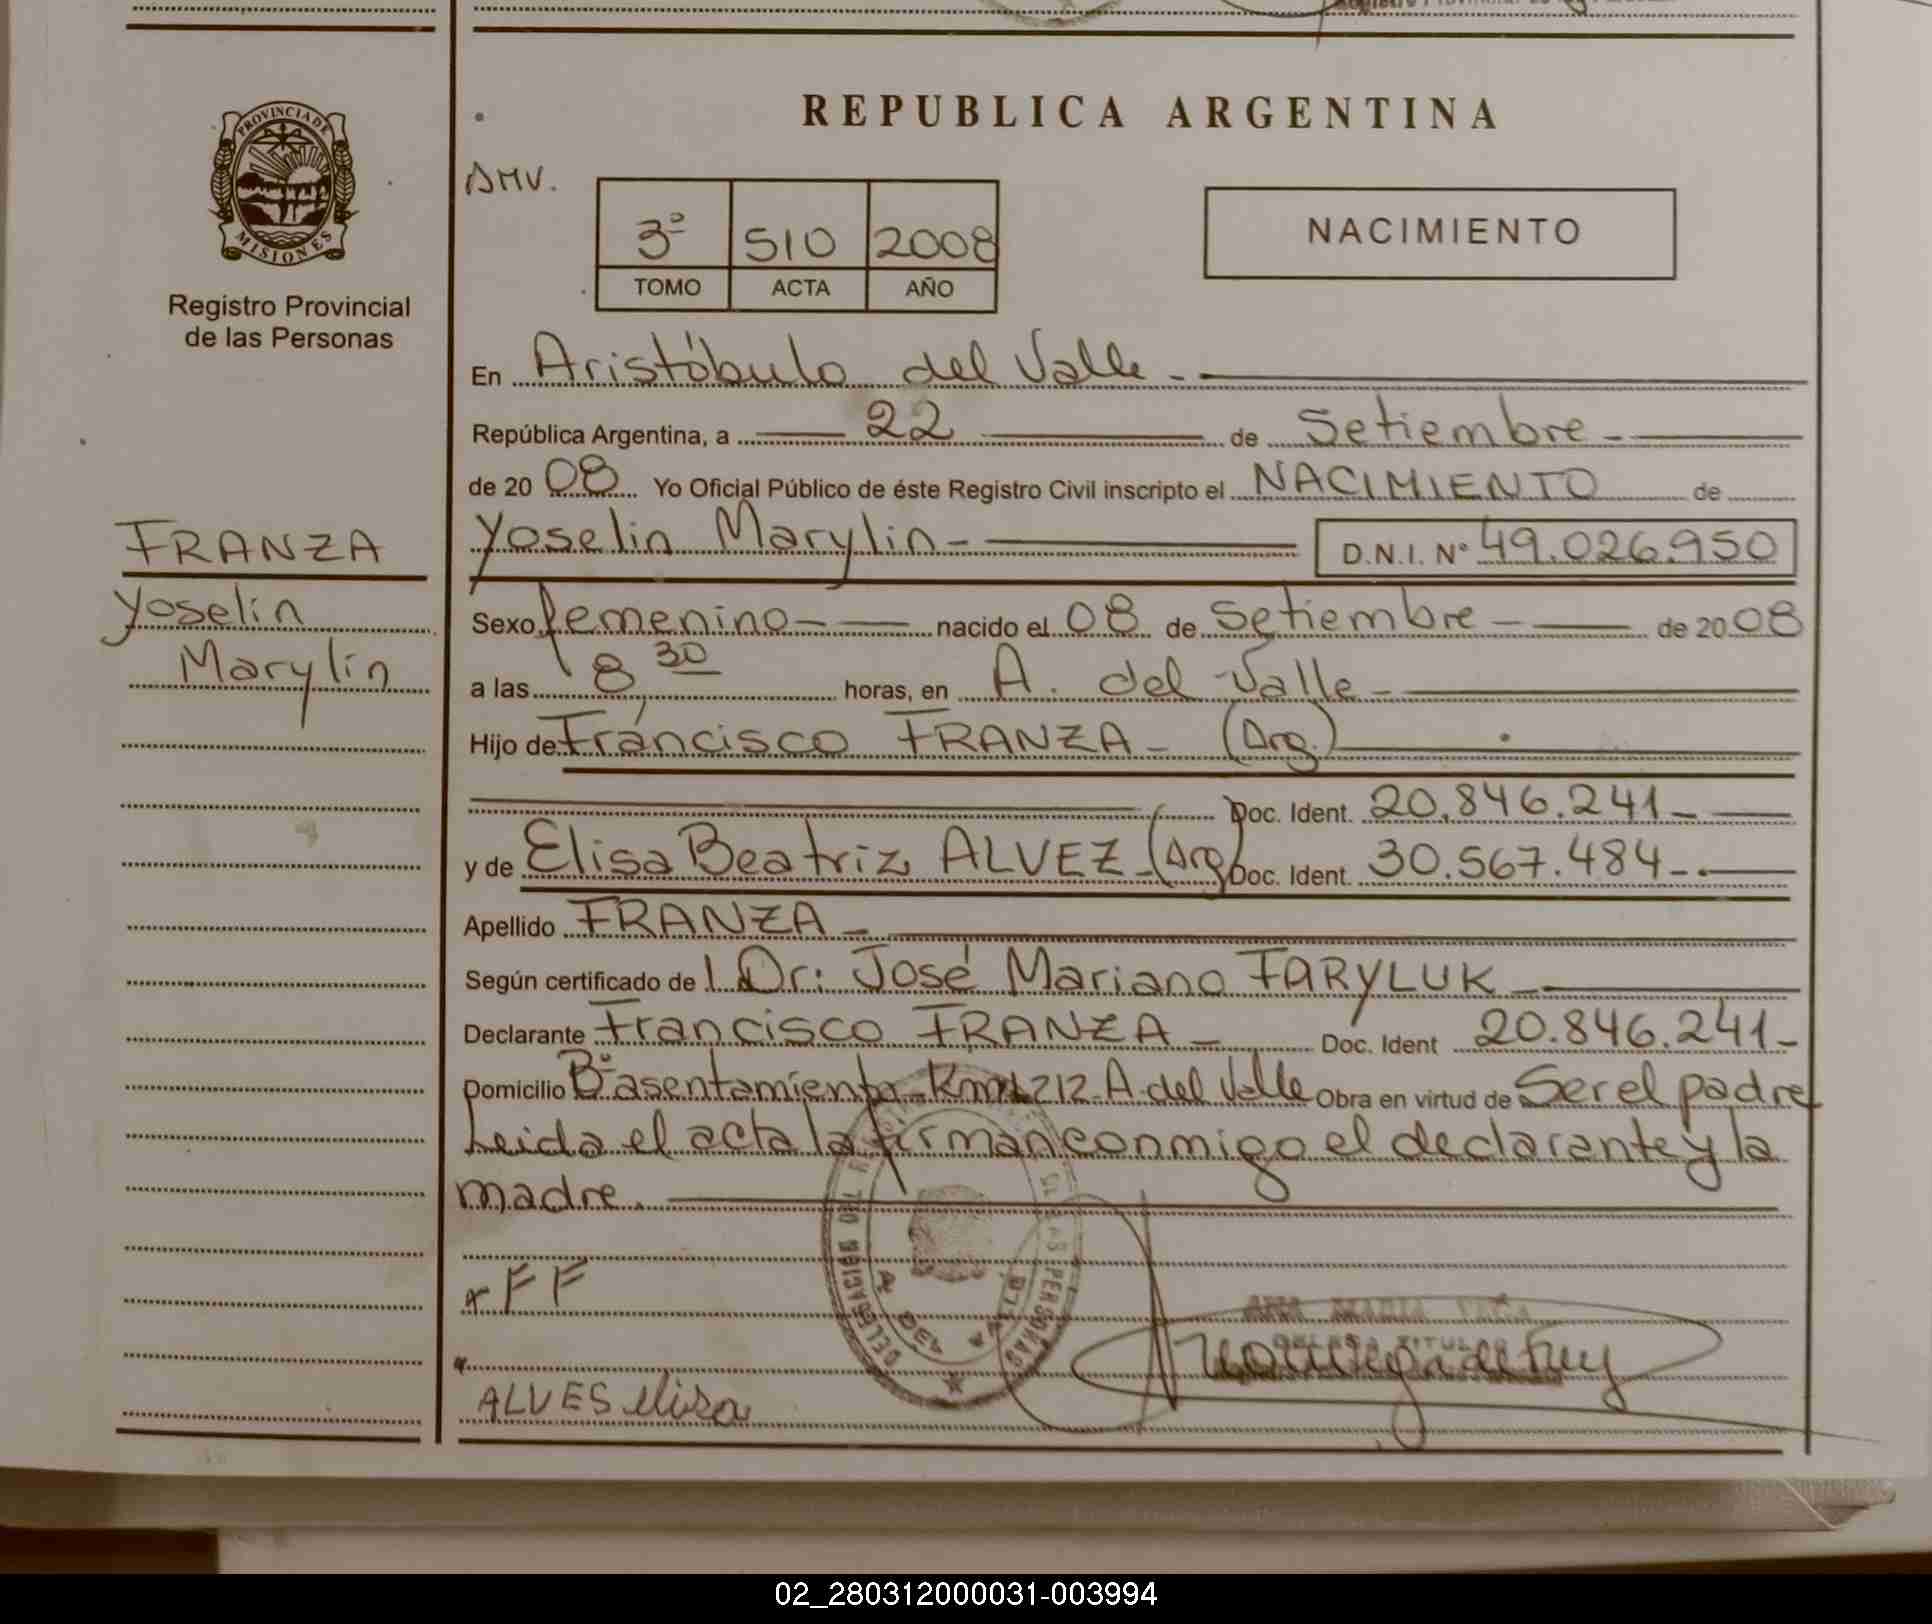 PROVINCIA DE
MISIONES
Registro Provincial
de las Personas
FRANZA
Yoselin
Marylin
REPUBLICA ARGENTINA
AMV.
3º 510 2008
TOMO ACTA AÑO
NACIMIENTO
En Aristóbulo del Valle -
República Argentina, a 22 de Setiembre -
de 20 08 Yo Oficial Público de éste Registro Civil inscripto el NACIMIENTO de
Yoselin Marylin - D.N.I. Nº 49.026.950
Sexo femenino - nacido el 08 de Setiembre - de 20 08
a las 8,30 horas, en A. del Valle -
Hijo de Francisco FRANZA - (Arg.)
Doc. Ident. 20.846.241 -
y de Elisa Beatriz ALVEZ - (Arg) Doc. Ident. 30.567.484 -
Apellido FRANZA -
Según certificado de l Dr: José Mariano FARYLUK -
Declarante Francisco FRANZA - Doc. Ident 20.846.241 -
Domicilio Bº asentamiento Km 1212 A. del Valle Obra en virtud de Ser el padre
Leida el acta la firman conmigo el declarante y la
madre.
x FF
DELEGACION
A. DEL VALLE
PERSONAS
ALVES elisa
02_280312000031-003994